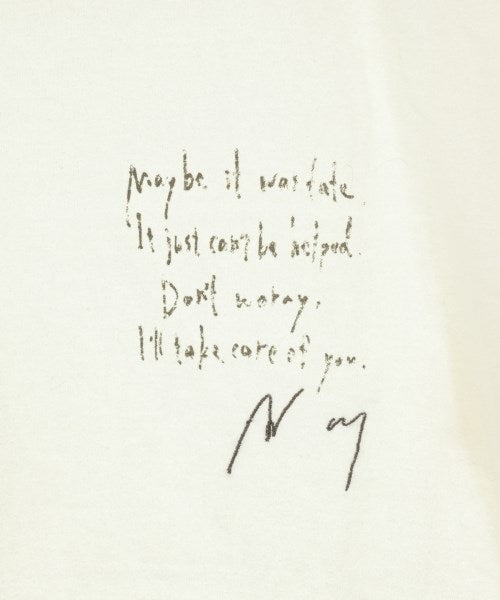 Maybe it was fate.
It just can't be helped.
Don't woray.
I'll take care of you.